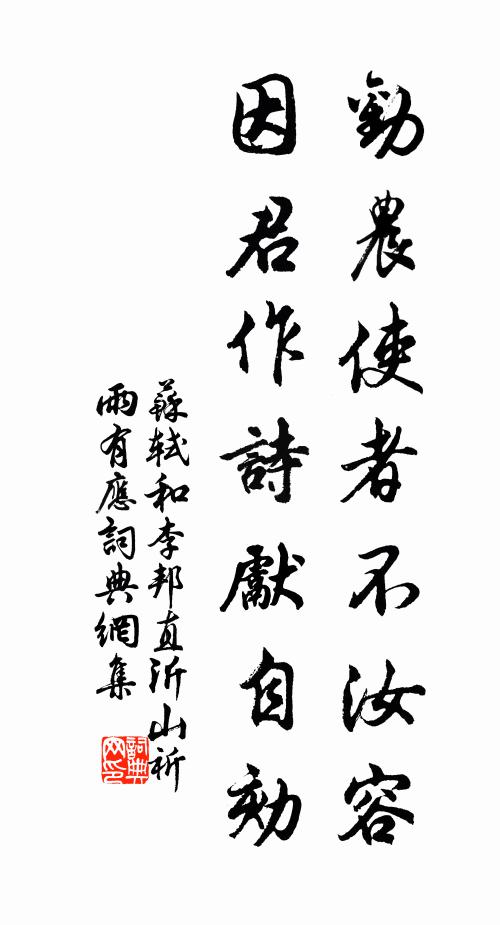 勸農使者不汝容
因君作詩獻自劾
蘇軾和李邦直沂山祈
雨有應詞典網集
詞典
网印